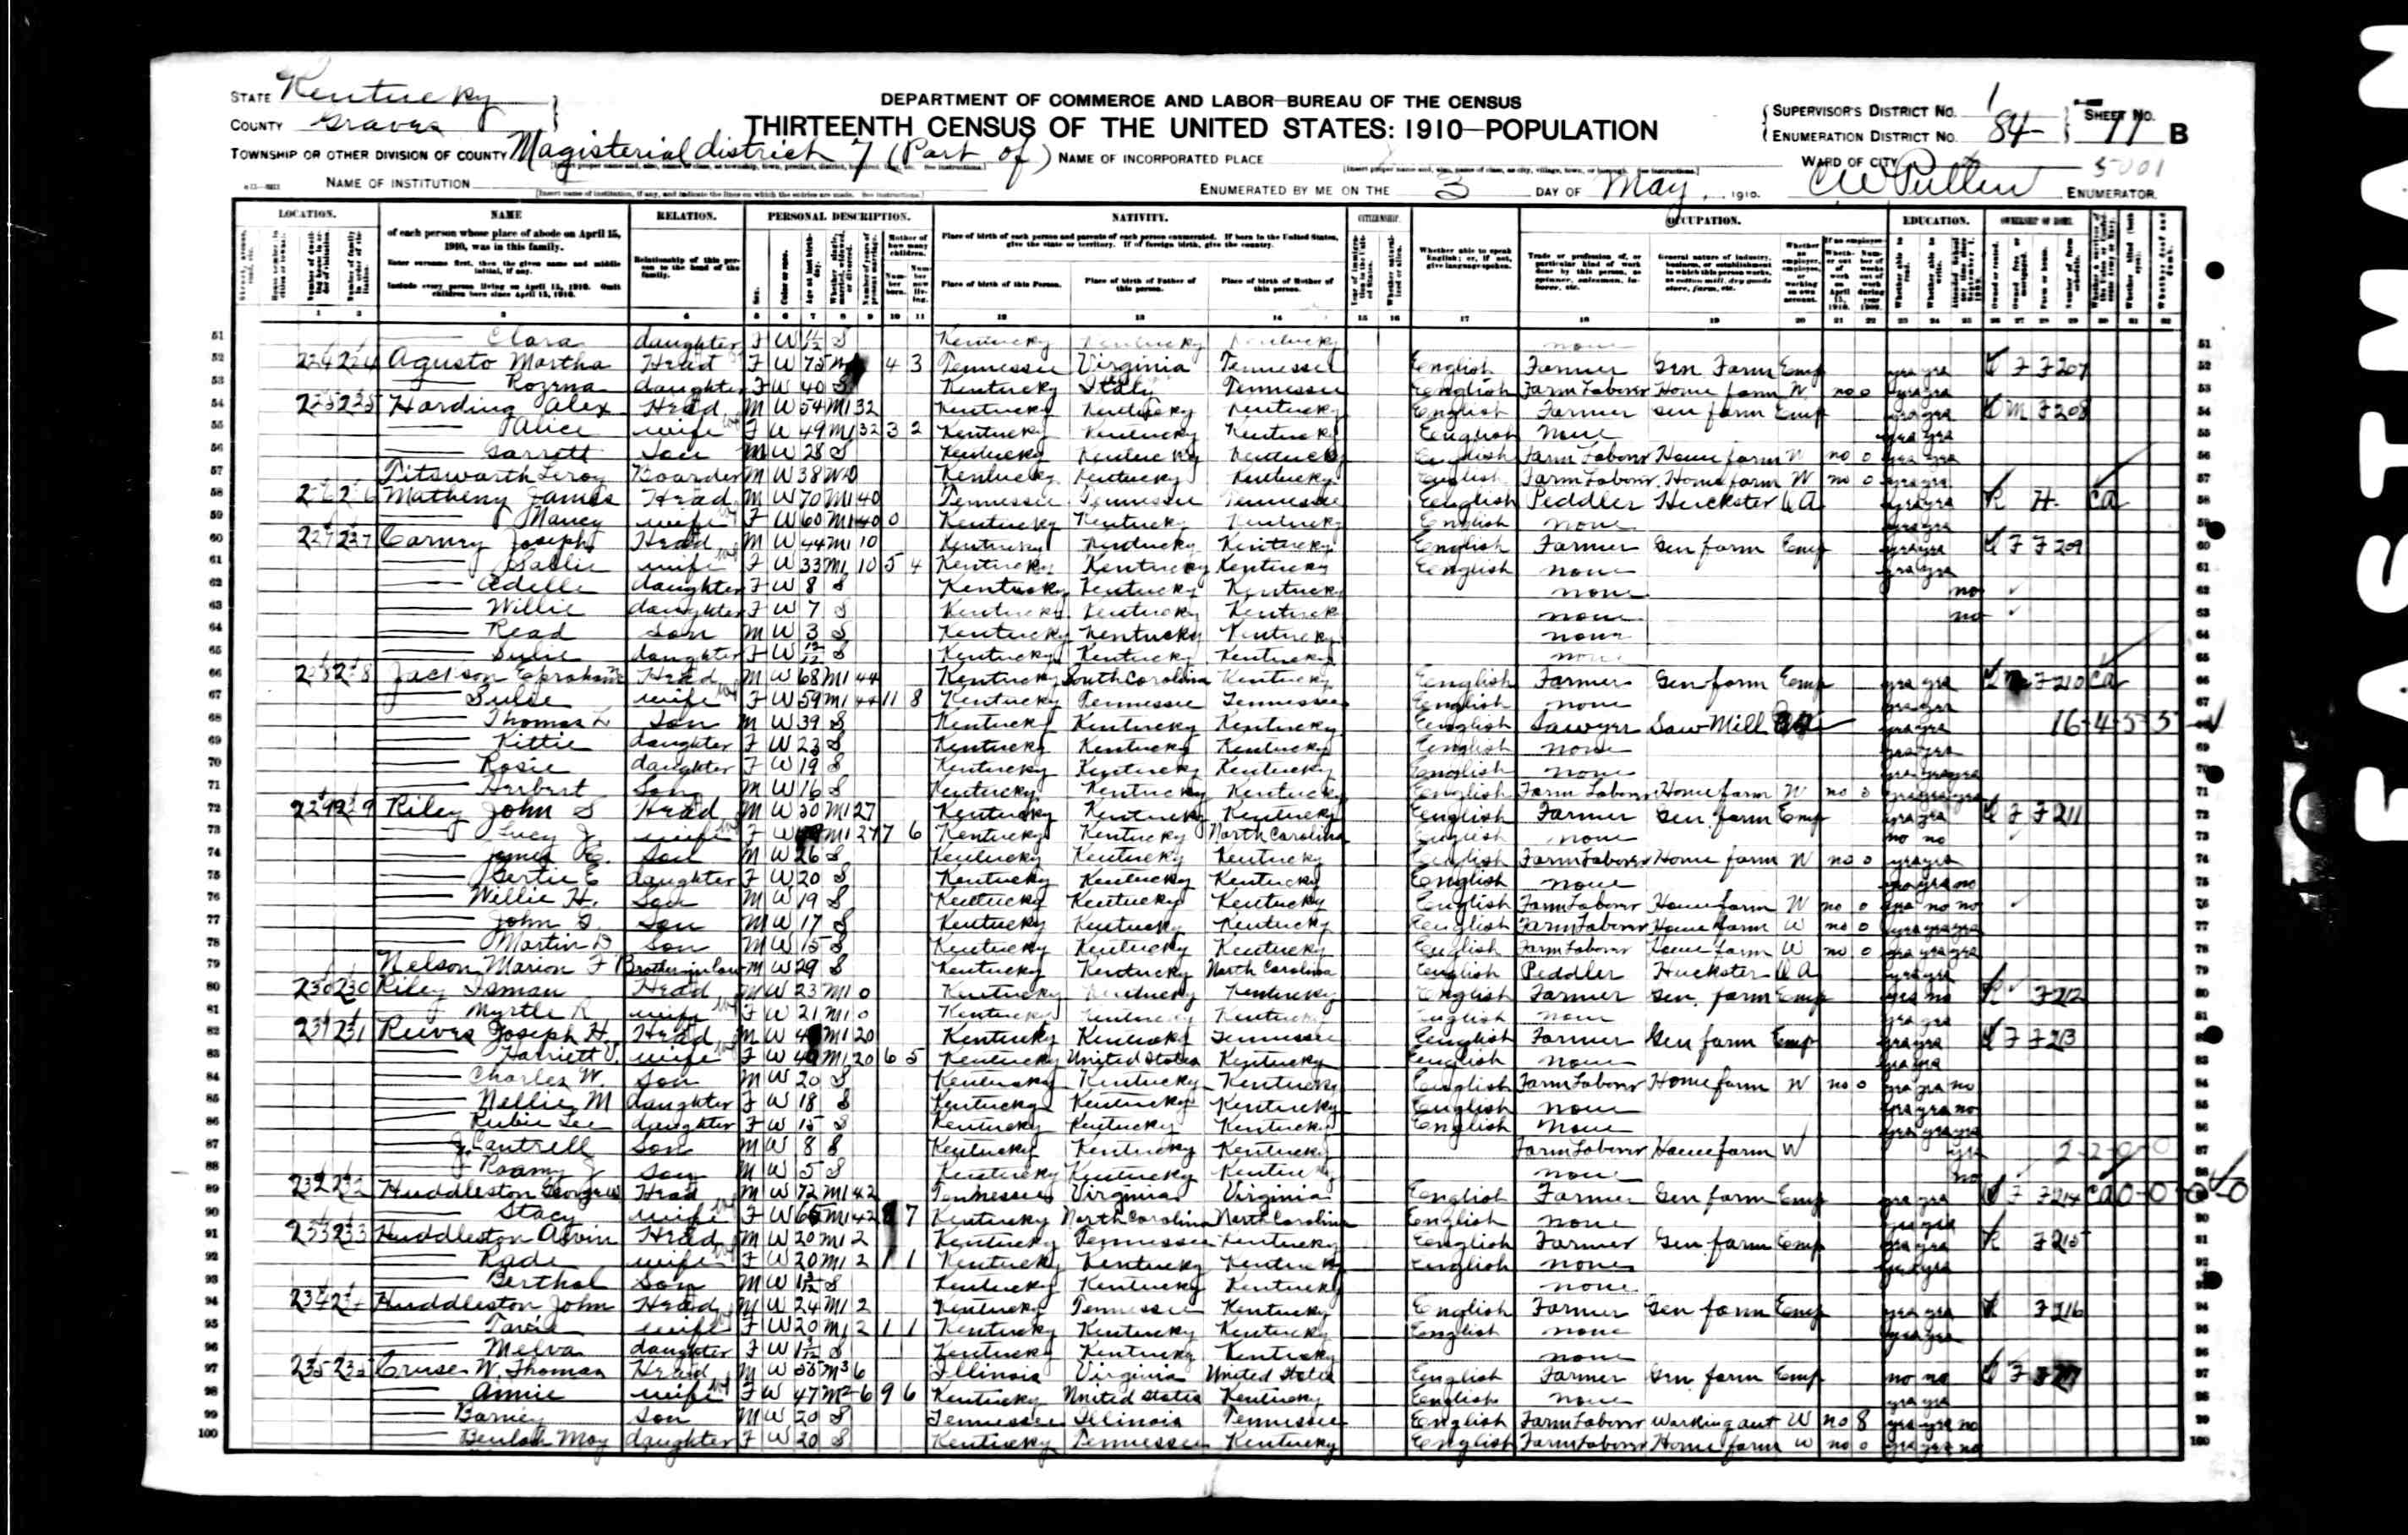 STATE Kentucky
COUNTY Graves
DEPARTMENT OF COMMERCE AND LABOR—BUREAU OF THE CENSUS
THIRTEENTH CENSUS OF THE UNITED STATES: 1910—POPULATION
SUPERVISOR'S DISTRICT NO. 1
ENUMERATION DISTRICT NO. 84
SHEET NO. 11 B
TOWNSHIP OR OTHER DIVISION OF COUNTY Magisterial district 7 (Part of)
NAME OF INCORPORATED PLACE
WARD OF CITY
5001
NAME OF INSTITUTION
ENUMERATED BY ME ON THE 3 DAY OF May, 1910.
C W Pullen ENUMERATOR.
LOCATION. NAME RELATION. PERSONAL DESCRIPTION. NATIVITY. CITIZENSHIP. OCCUPATION. EDUCATION. OWNERSHIP OF HOME.
of each person whose place of abode on April 15, 1910, was in this family.
Enter surname first, then the given name and middle initial, if any.
Include every person living on April 15, 1910. Omit children born since April 15, 1910.
Relationship of this person to the head of the family.
Place of birth of each person and parents of each person enumerated. If born in the United States, give the state or territory. If of foreign birth, give the country.
Place of birth of this Person. Place of birth of Father of this person. Place of birth of Mother of this person.
Whether able to speak English; or, if not, give language spoken.
51 Clara daughter F W S Kentucky Kentucky Kentucky none
52 224 224 Agusto Martha Head F W 75 4 3 Tennessee Virginia Tennessee English Farmer Gen Farm Emp yes yes O F F 207
53 Rozena daughter F W 40 S Kentucky Italy Tennessee English Farm Laborer Home farm W no 0 yes yes
54 225 225 Harding Alex Head M W 54 M1 32 Kentucky Kentucky Kentucky English Farmer Gen farm Emp yes yes O M F 208
55 Alice wife F W 49 M1 32 3 2 Kentucky Kentucky Kentucky English none yes yes
56 Garrett Son M W 28 S Kentucky Kentucky Kentucky English Farm Laborer Home farm W no 0 yes yes
57 Titsworth Leroy Boarder M W 38 Wd Kentucky Kentucky Kentucky English Farm Laborer Home farm W no 0 yes yes
58 226 226 Matheny James Head M W 70 M1 40 Tennessee Tennessee Tennessee English Peddler Huckster O A yes yes R H CA
59 Nancy wife F W 60 M1 40 0 Kentucky Kentucky Kentucky English none yes yes
60 227 227 Carney Joseph Head M W 44 M1 10 Kentucky Kentucky Kentucky English Farmer Gen farm Emp yes yes O F F 209
61 Sallie wife F W 33 M1 10 5 4 Kentucky Kentucky Kentucky English none yes yes
62 Adelle daughter F W 8 S Kentucky Kentucky Kentucky none no
63 Willie daughter F W 7 S Kentucky Kentucky Kentucky none no
64 Read Son M W 3 S Kentucky Kentucky Kentucky none
65 Sulie daughter F W S Kentucky Kentucky Kentucky none
66 228 228 Jackson Ephraham Head M W 68 M1 44 Kentucky South Carolina Kentucky English Farmer Gen farm Emp yes yes O F 210 CA
67 Sulie wife F W 59 M1 44 11 8 Kentucky Tennessee Tennessee English none yes yes
68 Thomas L Son M W 39 S Kentucky Kentucky Kentucky English Sawyer Saw Mill yes yes 16-4-5-5
69 Kittie daughter F W 23 S Kentucky Kentucky Kentucky English none yes yes
70 Rosie daughter F W 19 S Kentucky Kentucky Kentucky English none yes yes yes
71 Herbert Son M W 16 S Kentucky Kentucky Kentucky English Farm Laborer Home farm W no 0 yes yes yes
72 229 229 Riley John S Head M W 50 M1 27 Kentucky Kentucky Kentucky English Farmer Gen farm Emp yes yes O F F 211
73 Lucy J wife F W M1 27 7 6 Kentucky Kentucky North Carolina English none no no
74 James E. Son M W 26 S Kentucky Kentucky Kentucky English Farm Laborer Home farm W no 0 yes yes
75 Gertie E daughter F W 20 S Kentucky Kentucky Kentucky English none yes yes no
76 Willie H. Son M W 19 S Kentucky Kentucky Kentucky English Farm Laborer Home farm W no 0 yes no no
77 John Son M W 17 S Kentucky Kentucky Kentucky English Farm Laborer Home farm W no 0 yes yes yes
78 Martin D Son M W 15 S Kentucky Kentucky Kentucky English Farm Laborer Home farm W no 0 yes yes yes
79 Nelson Marion F Brother in law M W 29 S Kentucky Kentucky North Carolina English Peddler Huckster O A yes yes
80 230 230 Riley Isman Head M W 23 M1 0 Kentucky Kentucky Kentucky English Farmer Gen. farm Emp yes no R F 212
81 Myrtle R wife F W 21 M1 0 Kentucky Kentucky Kentucky English none yes yes
82 231 231 Reeves Joseph H. Head M W M1 20 Kentucky Kentucky Tennessee English Farmer Gen farm Emp yes yes O F F 213
83 Harriett wife F W M1 20 6 5 Kentucky United States Kentucky English none yes yes
84 Charles W. Son M W 20 S Kentucky Kentucky Kentucky English Farm Laborer Home farm W no 0 yes yes no
85 Nellie M daughter F W 18 S Kentucky Kentucky Kentucky English none yes yes no
86 Rubie Lee daughter F W 15 S Kentucky Kentucky Kentucky English none yes yes yes
87 J. Cantrell Son M W 8 S Kentucky Kentucky Kentucky Farm Laborer Home farm W yes 2-2-0-0
88 Roamy J Son M W 5 S Kentucky Kentucky Kentucky none no
89 232 232 Huddleston George W Head M W 72 M1 42 Tennessee Virginia Virginia English Farmer Gen farm Emp yes yes O F F 214 CA 0-0-0-0
90 Stacy wife F W M1 42 7 Kentucky North Carolina North Carolina English none yes yes
91 233 233 Huddleston Alvin Head M W 20 M1 2 Kentucky Tennessee Kentucky English Farmer Gen farm Emp yes yes R F 215
92 Rade wife F W 20 M1 2 1 1 Kentucky Kentucky Kentucky English none yes yes
93 Berthal Son M W S Kentucky Kentucky Kentucky none
94 234 234 Huddleston John Head M W 24 M1 2 Kentucky Tennessee Kentucky English Farmer Gen farm Emp yes yes R F 216
95 wife F W 20 M1 2 1 1 Kentucky Kentucky Kentucky English none yes yes
96 Melva daughter F W S Kentucky Kentucky Kentucky none
97 235 235 Cruse W. Thomas Head M W 55 M3 6 Illinois Virginia United States English Farmer Gen farm Emp no no O F
98 Annie wife F W 47 M2 6 9 6 Kentucky United States Kentucky English none yes yes
99 Barney Son M W 20 S Tennessee Illinois Tennessee English Farm Laborer Working out W no 8 yes yes no
100 Beulah May daughter F W 20 S Kentucky Tennessee Kentucky English Farm Laborer Home farm W no 0 yes yes no
EASTMAN